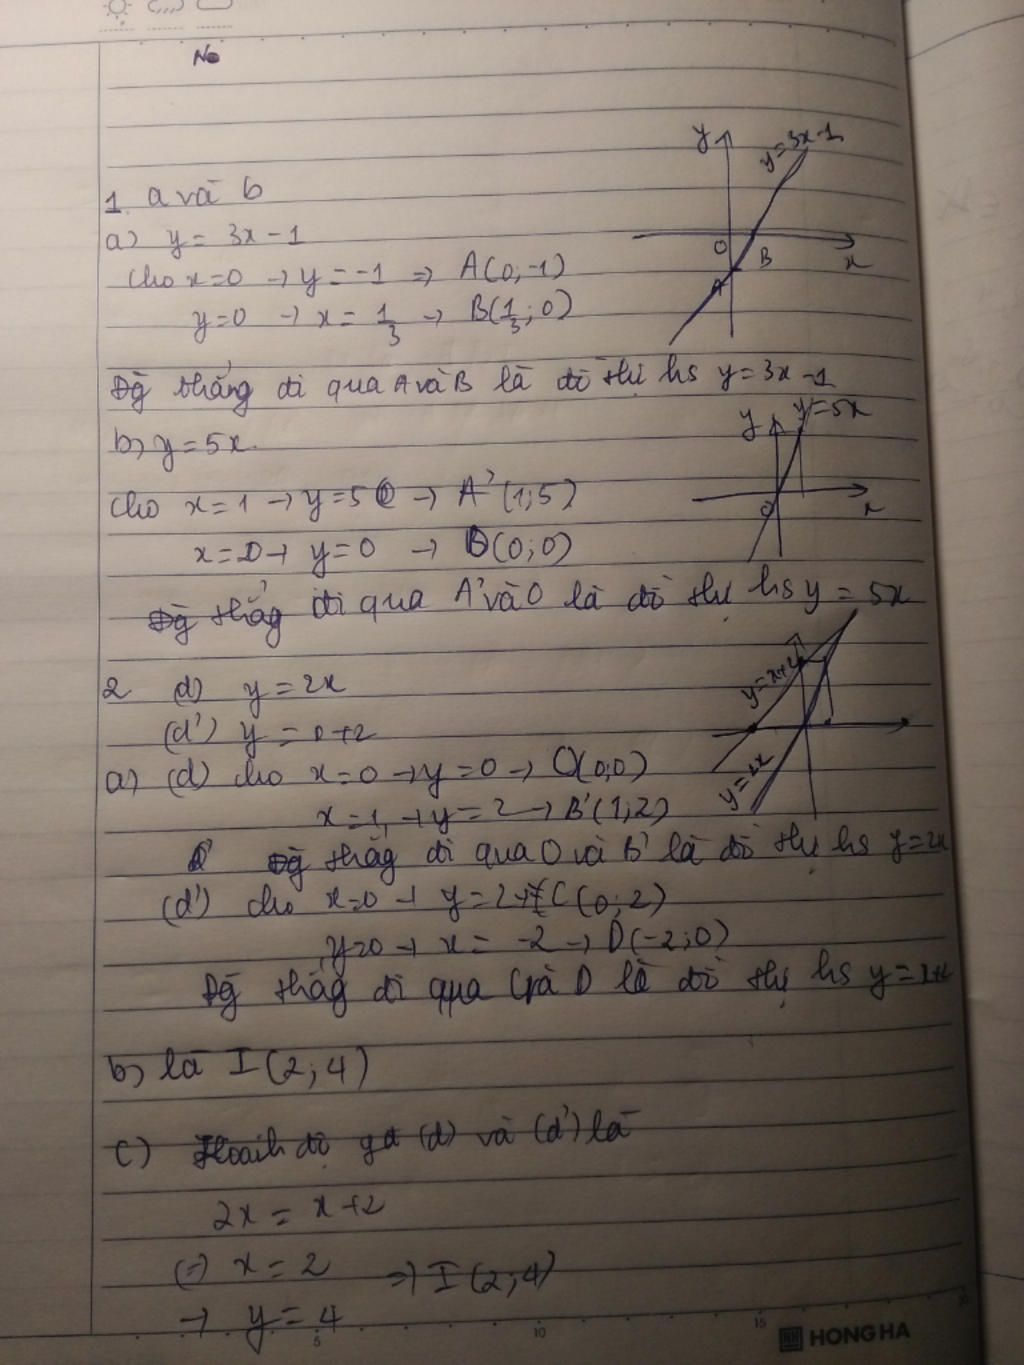 No
1. a và b
a) y = 3x - 1
y
y = 3x - 1
Cho x = 0 → y = -1 ⇒ A(0; -1)
O
B
x
A
y = 0 → x = 1/3 → B(1/3; 0)
Đg thẳng đi qua A và B là đồ thị hs y = 3x - 1
b) y = 5x
y
y = 5x
Cho x = 1 → y = 5 → A'(1; 5)
O
x
x = 0 → y = 0 → O(0; 0)
Đg thẳg đi qua A' và O là đồ thị hs y = 5x
2 (d) y = 2x
y = x + 2
(d') y = x + 2
a) (d) cho x = 0 → y = 0 → O(0; 0)
y = 2x
x = 1 → y = 2 → B'(1; 2)
Đg thẳg đi qua O và B' là đồ thị hs y = 2x
(d') cho x = 0 → y = 2 → C(0; 2)
y = 0 → x = -2 → D(-2; 0)
Đg thẳg đi qua C và D là đồ thị hs y = x + 2
b) là I(2; 4)
c) Hoành độ gđ (d) và (d') là
2x = x + 2
(=) x = 2 ⇒ I(2; 4)
→ y = 4
5 10 15 20
HONG HA